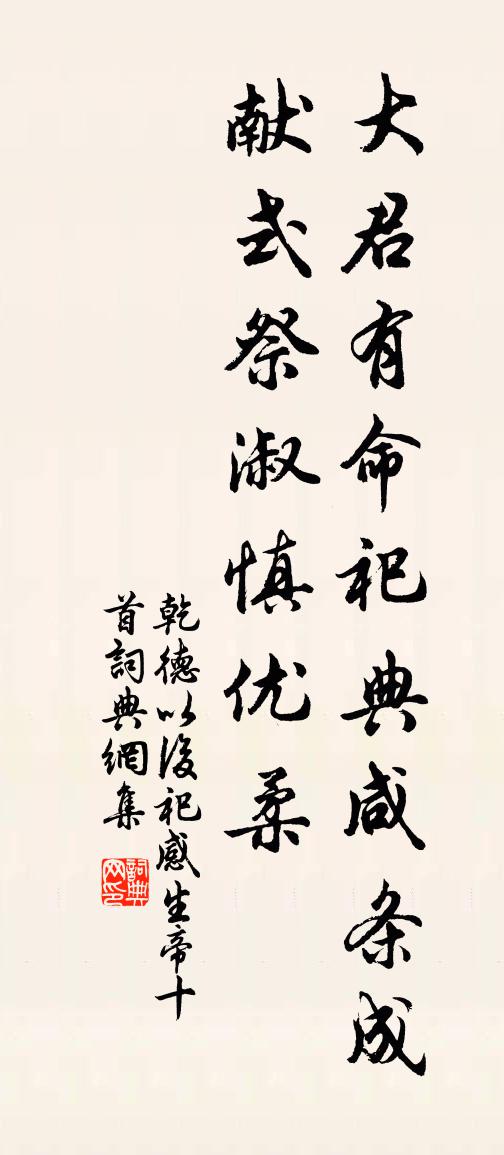 大君有命祀典咸条成
献式祭淑慎优柔
乾德以後祀感生帝十
首詞典網集
詞典网印